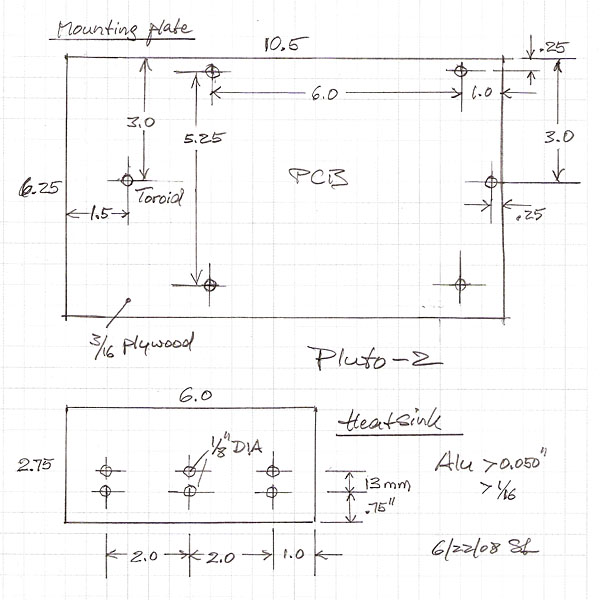 Mounting plate
10.5
.25
6.0
1.0
3.0
3.0
5.25
6.25
PCB
Toroid
1.5
.25
3/16 plywood
Pluto-2
6.0
Heatsink
1/8" DIA
2.75
Alu > 0.050"
> 1/16
13mm
.75"
2.0
2.0
1.0
6/22/08